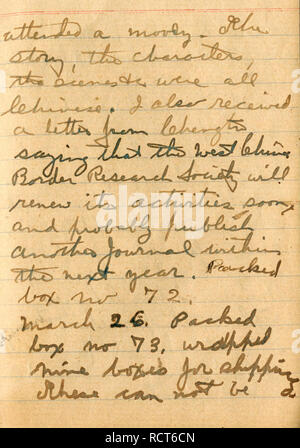 attended a movey. The
story, the characters,
the scenes etc were all
Chinise. I also received
a letter from Chengtu
saying that the West China
Border Research Society will
renew its activities soon,
and probably publish
another Journal within
the next year. Packed
box no 72.
March 26. Packed
box no 73, wrapped
nine boxes for shipping
These can not be
alamy
Image ID: RCT6CN
www.alamy.com